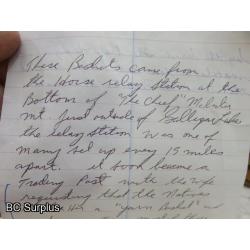 These Baskets came from
the Horse relay station at the
Bottom of "The Chief"
mt. just outside of
the relay station was one of
many set up every 15 miles
apart. it soon became a
Trading Post with the wife
requesting that the Natives
a "yarn Basket" and
BC Surplus